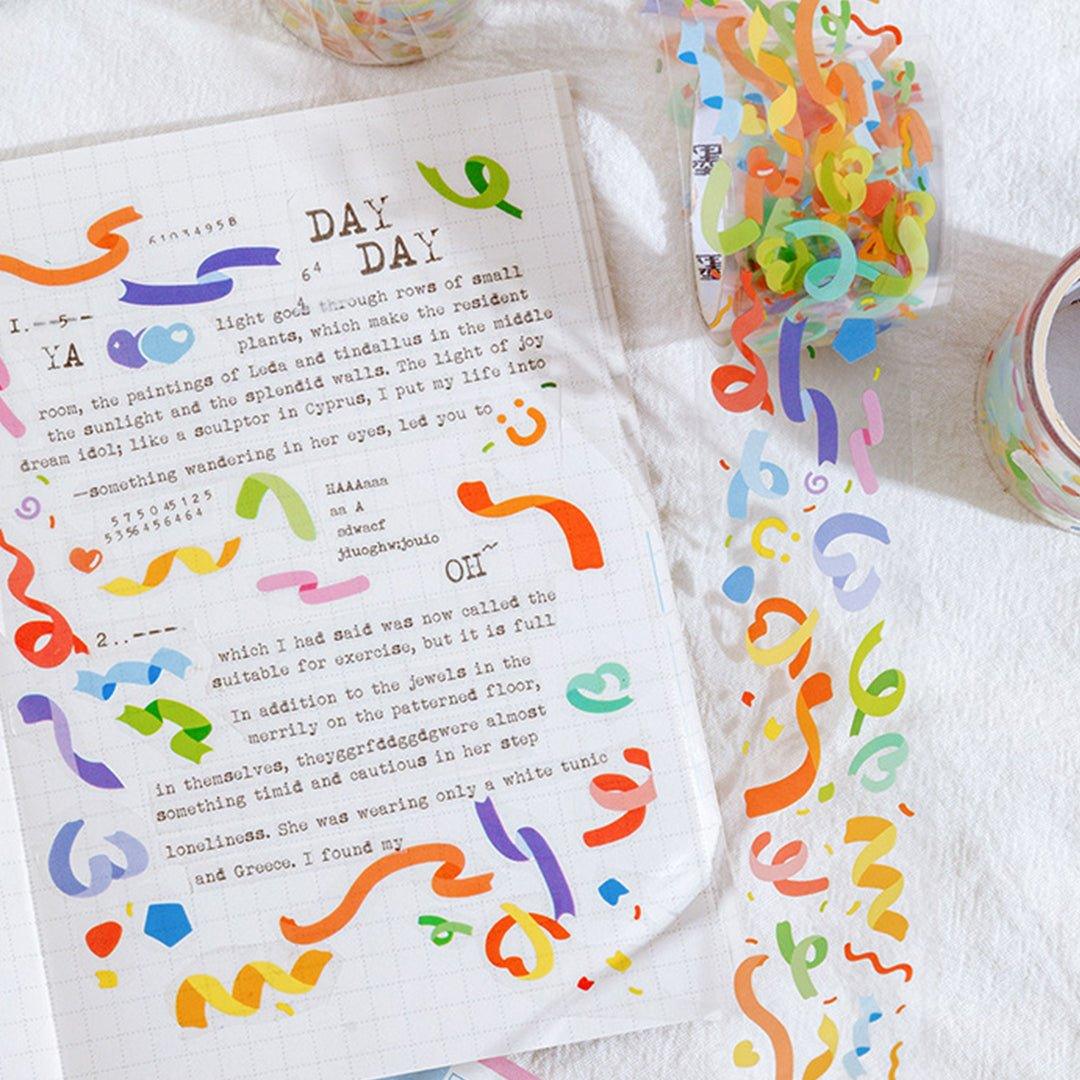 61034958
DAY
DAY
64
4
1.--5--
YA
light goes through rows of small
plants, which make the resident
room, the paintings of Leda and tindallus in the middle
the sunlight and the splendid walls. The light of joy
dream idol; like a sculptor in Cyprus, I put my life into
—something wandering in her eyes, led you to
5 7 5 0 45 1 2 5
5 3 56 4 5 6 4 6 4
HAAAaaa
aa A
adwacf
jduoghwjouio
OH~
2..---
which I had said was now called the
suitable for exercise, but it is full
In addition to the jewels in the
merrily on the patterned floor,
in themselves, theyggrfddggdgwere almost
something timid and cautious in her step
loneliness. She was wearing only a white tunic
and Greece. I found my